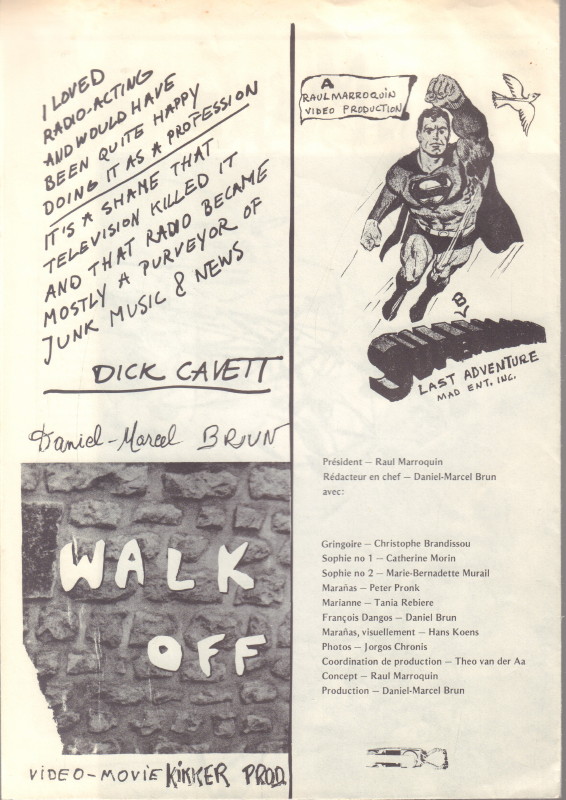 I LOVED
RADIO-ACTING
AND WOULD HAVE
BEEN QUITE HAPPY
DOING IT AS A PROFESSION
IT'S A SHAME THAT
TELEVISION KILLED IT
AND THAT RADIO BECAME
MOSTLY A PURVEYOR OF
JUNK MUSIC & NEWS
DICK CAVETT
Daniel-Marcel BRUN
WALK
OFF
VIDEO-MOVIE KIKKER PROD.
A
RAUL MARROQUIN
VIDEO PRODUCTION
S
B
LAST ADVENTURE
MAD ENT. INC.
Président — Raul Marroquin
Rédacteur en chef — Daniel-Marcel Brun
avec:
Gringoire — Christophe Brandissou
Sophie no 1 — Catherine Morin
Sophie no 2 — Marie-Bernadette Murail
Marañas — Peter Pronk
Marianne — Tania Rebiere
François Dangos — Daniel Brun
Marañas, visuellement — Hans Koens
Photos — Jorgos Chronis
Coordination de production — Theo van der Aa
Concept — Raul Marroquin
Production — Daniel-Marcel Brun